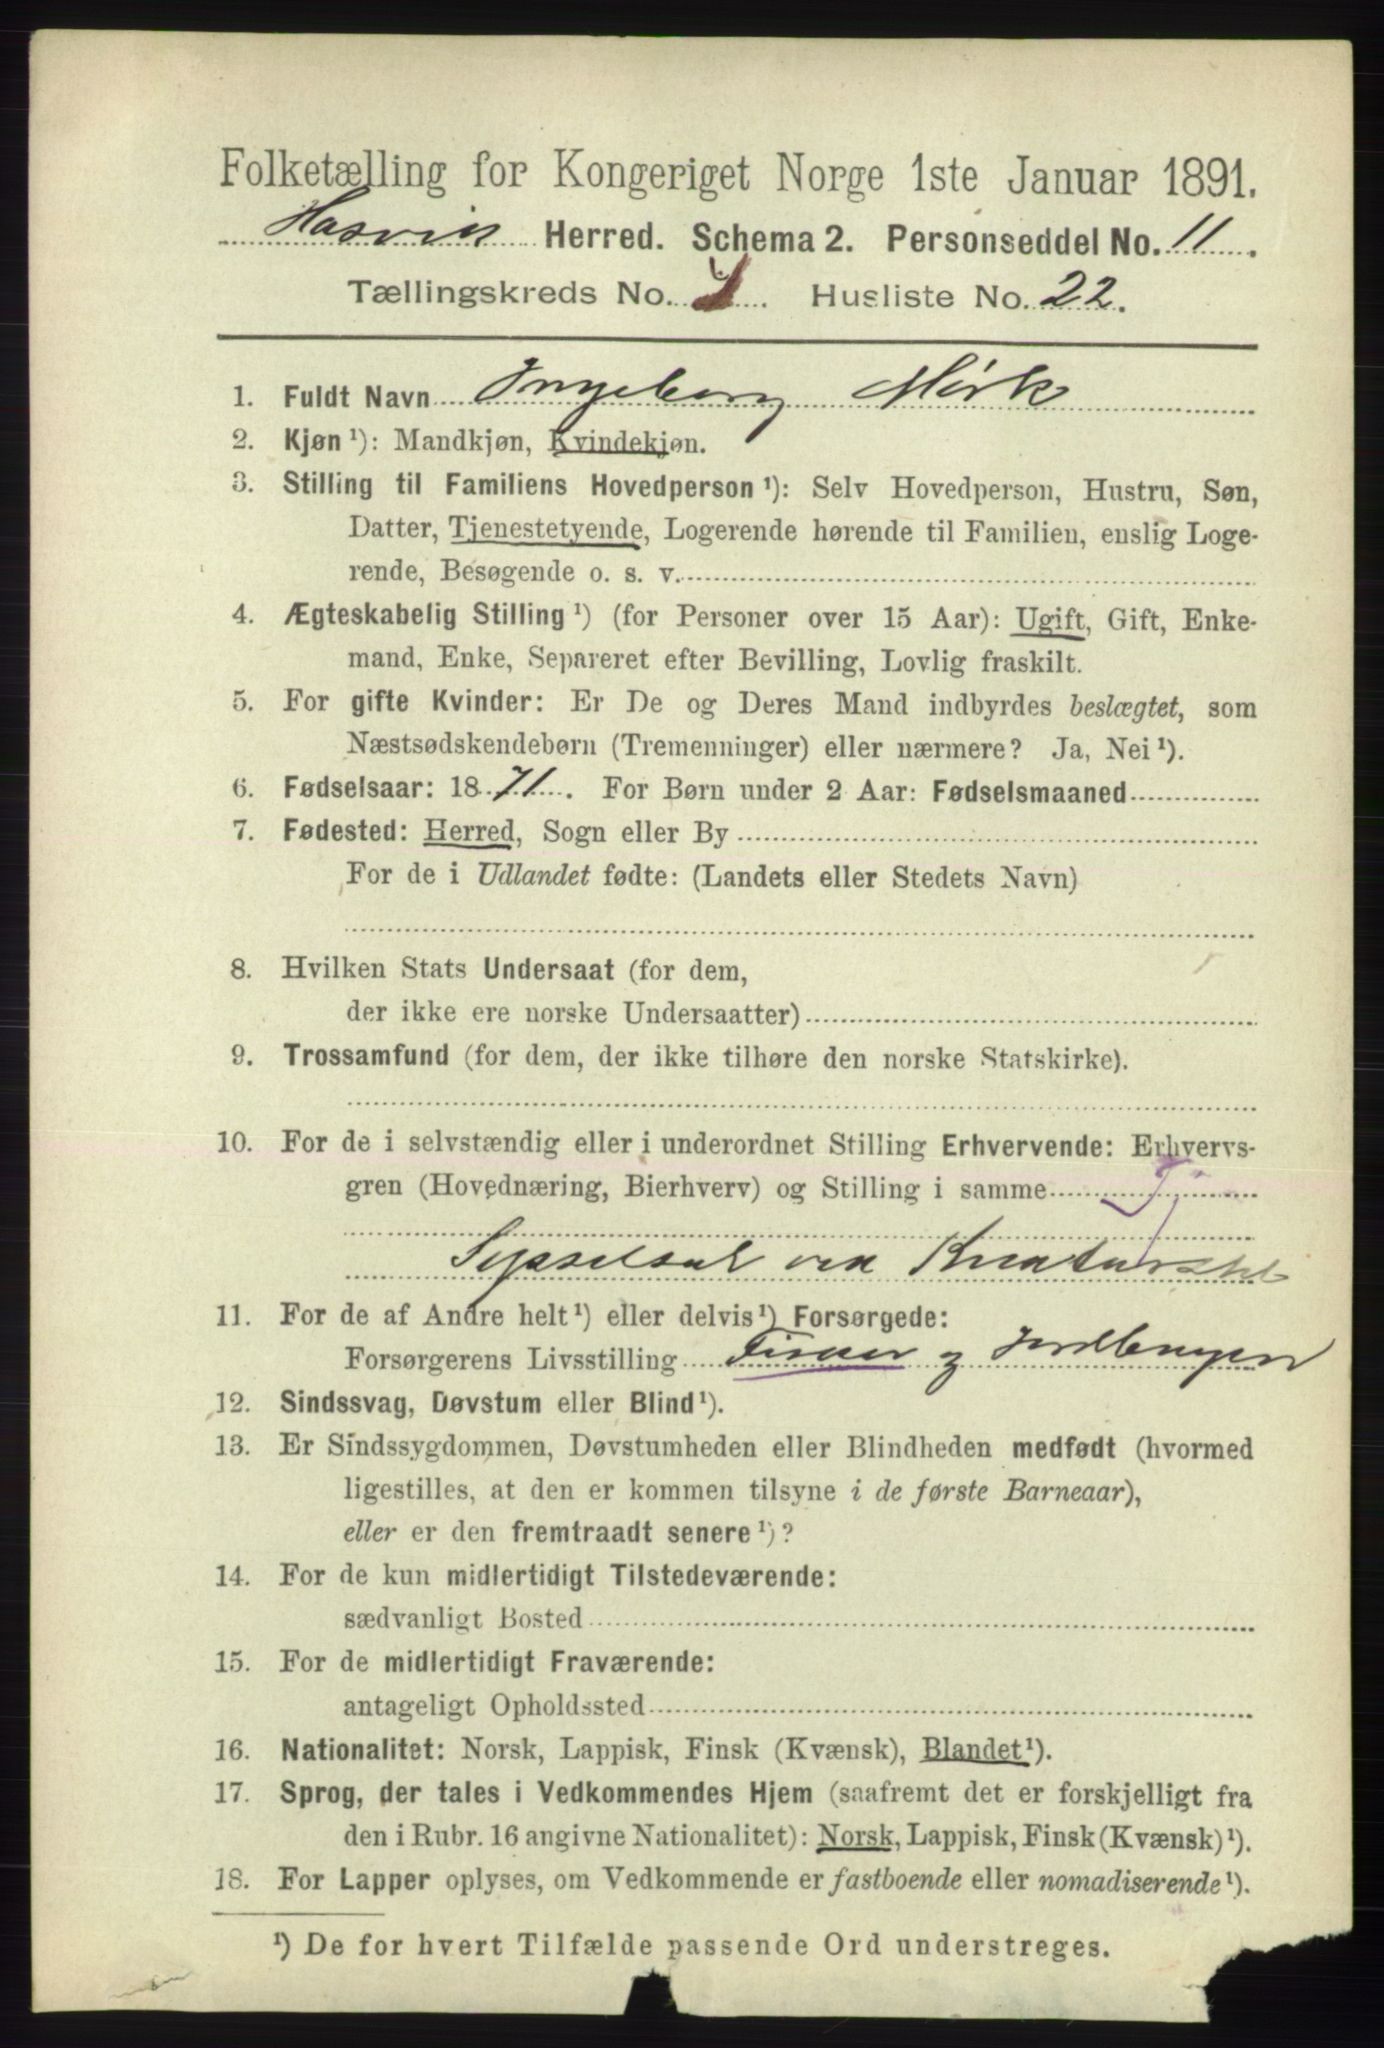 Folketælling for Kongeriget Norge 1ste Januar 1891.
Hasvik Herred. Schema 2. Personseddel No. 11.
Tællingskreds No. 4. Husliste No. 22.
1. Fuldt Navn Ingeborg Mørk
2. Kjøn ¹): Mandkjøn, Kvindekjøn.
3. Stilling til Familiens Hovedperson ¹): Selv Hovedperson, Hustru, Søn,
Datter, Tjenestetyende, Logerende hørende til Familien, enslig Loge-
rende, Besøgende o. s. v.
4. Ægteskabelig Stilling ¹) (for Personer over 15 Aar): Ugift, Gift, Enke-
mand, Enke, Separeret efter Bevilling, Lovlig fraskilt.
5. For gifte Kvinder: Er De og Deres Mand indbyrdes beslægtet, som
Næstsødskendebørn (Tremenninger) eller nærmere? Ja, Nei ¹).
6. Fødselsaar: 1871. For Børn under 2 Aar: Fødselsmaaned
7. Fødested: Herred, Sogn eller By
For de i Udlandet fødte: (Landets eller Stedets Navn)
8. Hvilken Stats Undersaat (for dem,
der ikke ere norske Undersaatter)
9. Trossamfund (for dem, der ikke tilhøre den norske Statskirke).
10. For de i selvstændig eller i underordnet Stilling Erhvervende: Erhvervs-
gren (Hovednæring, Bierhverv) og Stilling i samme Tj
Sysselsat ved Kreaturstel
11. For de af Andre helt ¹) eller delvis ¹) Forsørgede:
Forsørgerens Livsstilling Fisker og Jordbruger
12. Sindssvag, Døvstum eller Blind ¹).
13. Er Sindssygdommen, Døvstumheden eller Blindheden medfødt (hvormed
ligestilles, at den er kommen tilsyne i de første Barneaar),
eller er den fremtraadt senere ¹)?
14. For de kun midlertidigt Tilstedeværende:
sædvanligt Bosted
15. For de midlertidigt Fraværende:
antageligt Opholdssted
16. Nationalitet: Norsk, Lappisk, Finsk (Kvænsk), Blandet ¹).
17. Sprog, der tales i Vedkommendes Hjem (saafremt det er forskjelligt fra
den i Rubr. 16 angivne Nationalitet): Norsk, Lappisk, Finsk (Kvænsk) ¹).
18. For Lapper oplyses, om Vedkommende er fastboende eller nomadiserende ¹).
¹) De for hvert Tilfælde passende Ord understreges.